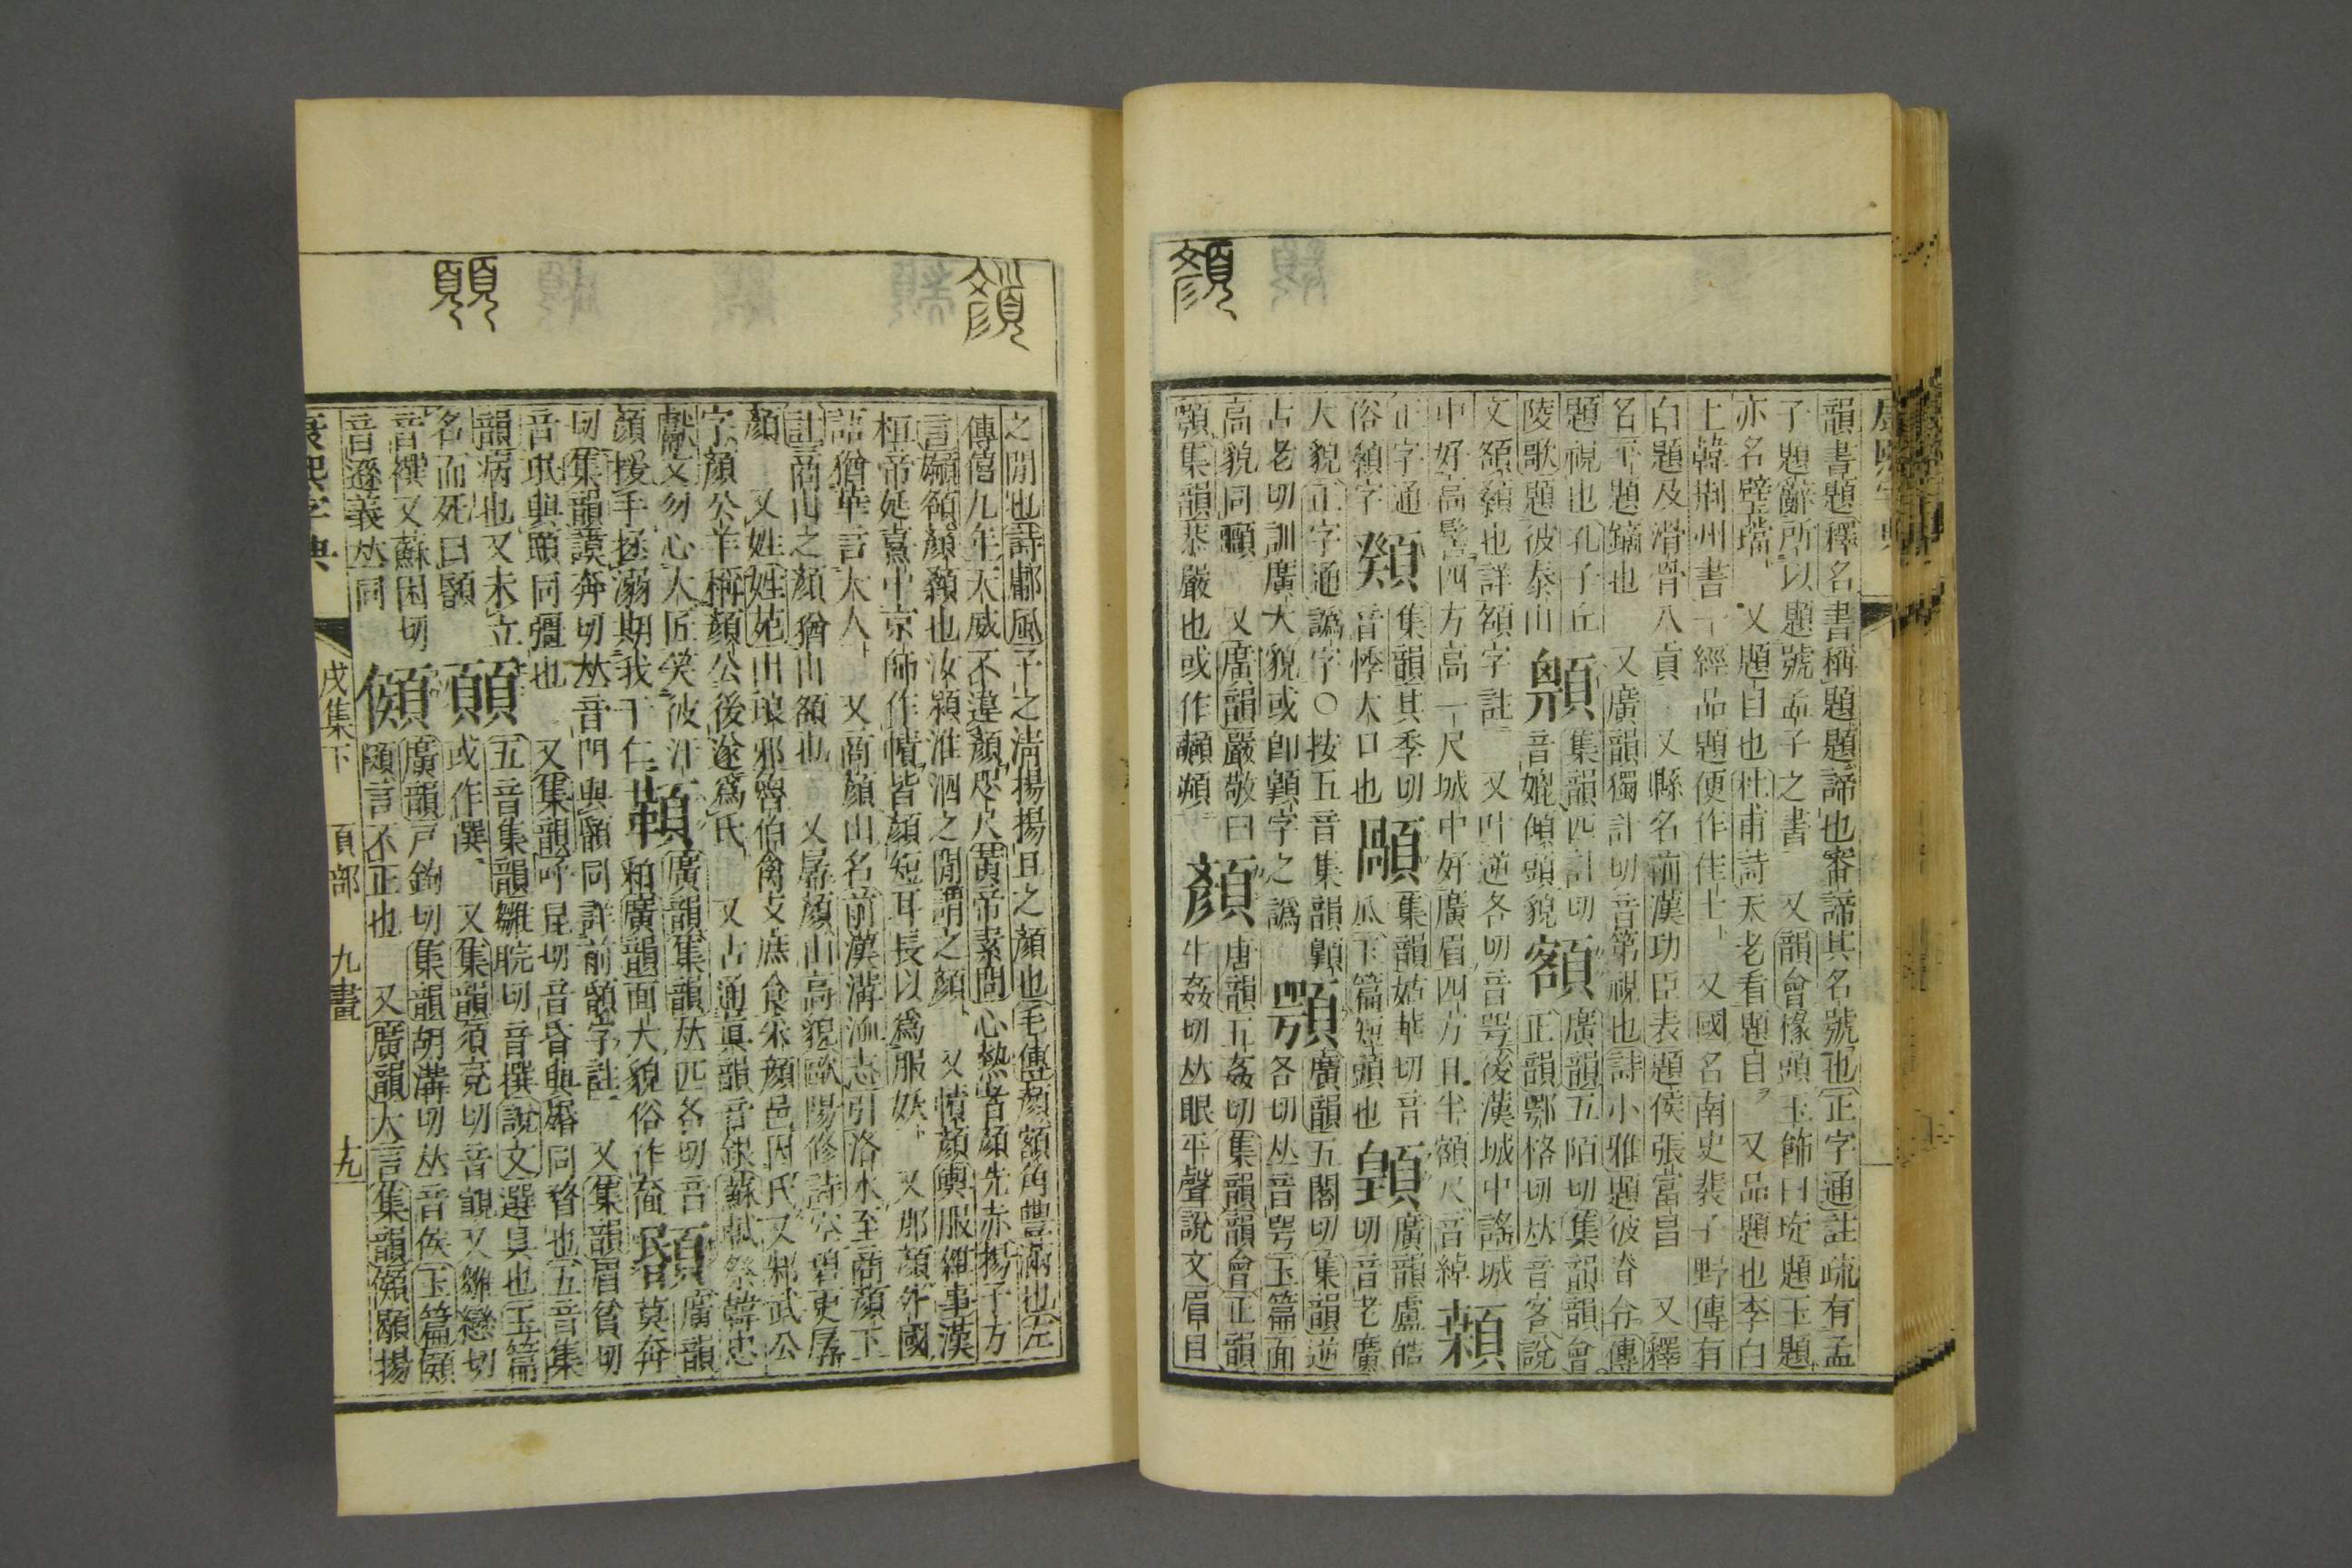 韻書題釋名書稱題題諦也審諦其名號也正字通註疏有孟
子題辭所以題號孟子之書 又韻會椽頭玉飾曰琁題玉題
亦名璧璫 又題目也杜甫詩天老看題目 又品題也李白
上韓荆州書一經品題便作佳士 又國名南史裴子野傳有
白題及滑骨入貢 又縣名前漢功臣表題侯張富昌 又釋
名下題鏑也 又廣韻獨計切音第視也詩小雅題彼脊令傳
題視也孔子丘
陵歌題彼泰山
集韻匹計切
音媲傾頭貌
額
廣韻五陌切集韻韻會
正韻鄂格切𠀤音客說
文頟顙也詳頟字註 又叶逆各切音咢後漢城中謠城
中好高髻四方高一尺城中好廣眉四方且半額尺音綽
正字通
俗顙字
集韻其季切
音悸大口也
集韻姑華切音
瓜玉篇短頭也
廣韻盧皓
切音老廣
大貌正字通譌字○按五音集韻顥
古老切訓廣大貌或卽顥字之譌
顎
廣韻五閣切集韻逆
各切𠀤音咢玉篇面
高貌同顎 又廣韻嚴敬曰
顎集韻恭嚴也或作
顏
唐韻五姦切集韻韻會正韻
牛姦切𠀤眼平聲說文眉目
顏
之閒也詩鄘風子之淸揚揚且之顏也毛傳顏額角豐滿也左
傳僖九年天威不違顏咫尺黃帝素問心熱者顏先赤揚子方
言頟顏顙也汝潁淮泗之閒謂之顏 又幘顏輿服雜事漢
桓帝延熹中京師作幘皆顏短耳長以爲服妖 又那顏外國
語猶華言大人 又商顏山名前漢溝洫志引洛水至商顏下
註商山之顏猶山額也 又孱顏山高貌歐陽修詩
顏 又姓姓苑出琅邪魯伯禽支庶食采顏邑因氏又邾武公
字顏公羊稱顏公後遂爲氏 又古通眞韻音銀蘇軾祭韓忠
獻文匆心大匠笑彼汗
顏援手拯溺期我于仁
廣韻集韻𠀤匹各切音
粕廣韻面大貌俗作
廣韻
莫奔
切集韻謨奔切𠀤音門與顝同詳前字註 又集韻眉貧切
音珉與顝同彊也 又集韻呼昆切音昏與㛰同瞀也五音集
韻病也又未立
名而死曰
顨
五音集韻雛睆切音撰說文選具也玉篇
或作㢲 又集韻須兗切音又雛戀切
音襈又蘇困切
音遜義𠀤同
廣韻戸鉤切集韻胡溝切𠀤音侯玉篇
言不正也 又廣韻大言集韻揚
康熙字典
戌集下
頁部
九畫
十九